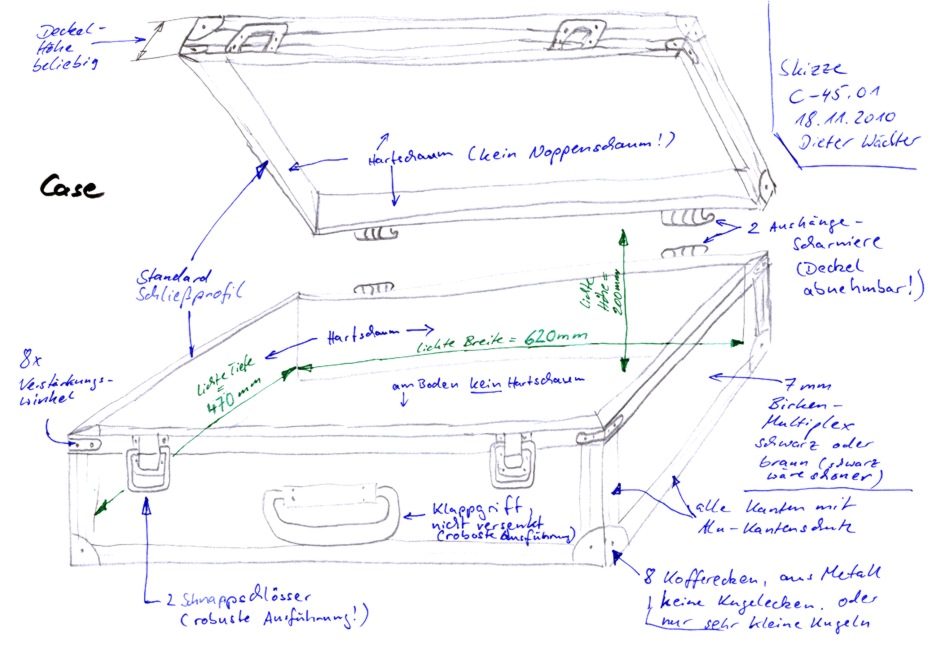 Deckel-
Höhe
beliebig
Skizze
C-45.01
18.11.2010
Dieter Wächter
Hartschaum (kein Noppenschaum!)
Case
2 Aushänge-
Scharniere
(Deckel
abnehmbar!)
Standard
Schließprofil
lichte
Höhe =
200mm
Hartschaum
lichte Breite = 620mm
8x
Verstärkungs-
winkel
lichte Tiefe
=
470mm
am Boden kein Hartschaum
7mm
Birken-
Multiplex
schwarz oder
braun (schwarz
wäre schöner)
Klappgriff,
nicht versenkt
(robuste Ausführung)
alle Kanten mit
Alu-Kantenschutz
2 Schnappschlösser
(robuste Ausführung!)
8 Kofferecken, aus Metall
keine Kugelecken, oder
nur sehr kleine Kugeln